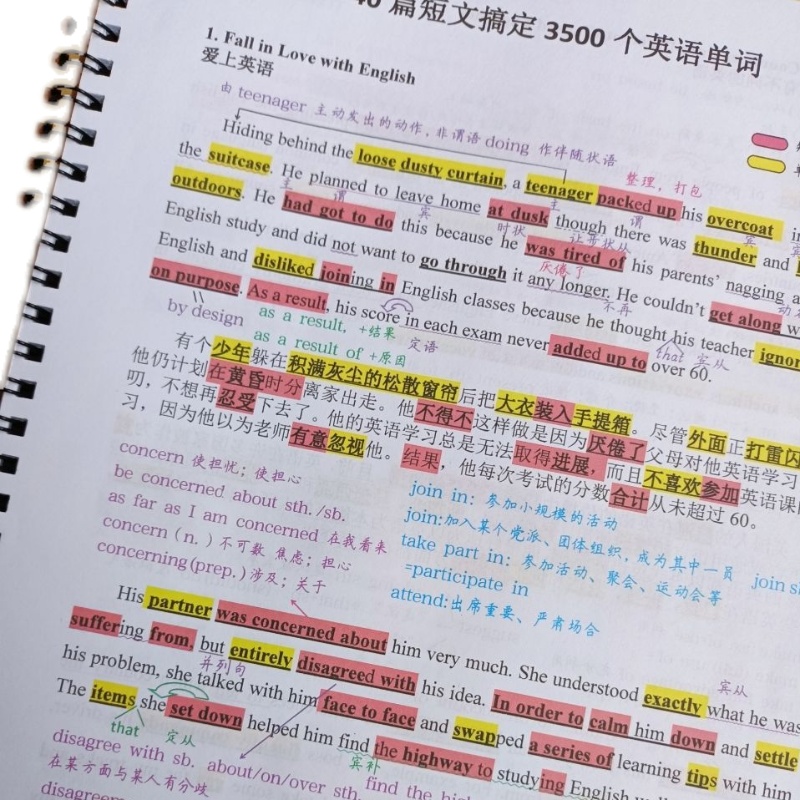 40 篇短文搞定 3500 个英语单词
1. Fall in Love with English
爱上英语
由 teenager 主动发出的动作，非谓语 doing 作伴随状语
Hiding behind the loose dusty curtain, a teenager packed up his overcoat
整理，打包
the suitcase. He planned to leave home at dusk though there was thunder and
主 谓 宾 时状 让步状从 主 谓 宾
outdoors. He had got to do this because he was tired of his parents' nagging a
厌倦了
English study and did not want to go through it any longer. He couldn't get along
不再
English and disliked joining in English classes because he thought his teacher ignor
that 宾从
on purpose. As a result, his score in each exam never added up to over 60.
by design
as a result, +结果
定语
as a result of +原因
有个少年躲在积满灰尘的松散窗帘后把大衣装入手提箱。尽管外面正打雷闪
他仍计划在黄昏时分离家出走。他不得不这样做是因为厌倦了父母对他英语学习
叨，不想再忍受下去了。他的英语学习总是无法取得进展，而且不喜欢参加英语课
习，因为他以为老师有意忽视他。结果，他每次考试的分数合计从未超过 60。
concern 使担忧；使担心
be concerned about sth./sb.
as far as I am concerned 在我看来
concern (n. ) 不可数 焦虑；担心
concerning(prep.) 涉及；关于
join in: 参加小规模的活动
join:加入某个党派、团体组织，成为其中一员 join s
take part in: 参加活动、聚会、运动会等
=participate in
attend:出席重要、严肃场合
His partner was concerned about him very much. She understood exactly what he was
宾从
suffering from, but entirely disagreed with his idea. In order to calm him down and settle
并列句
his problem, she talked with him face to face and swapped a series of learning tips with him
The items she set down helped him find the highway to studying English
that 定从
宾补
disagree with sb. about/on/over sth.
在某方面与某人有分歧
find the hig
disagreem